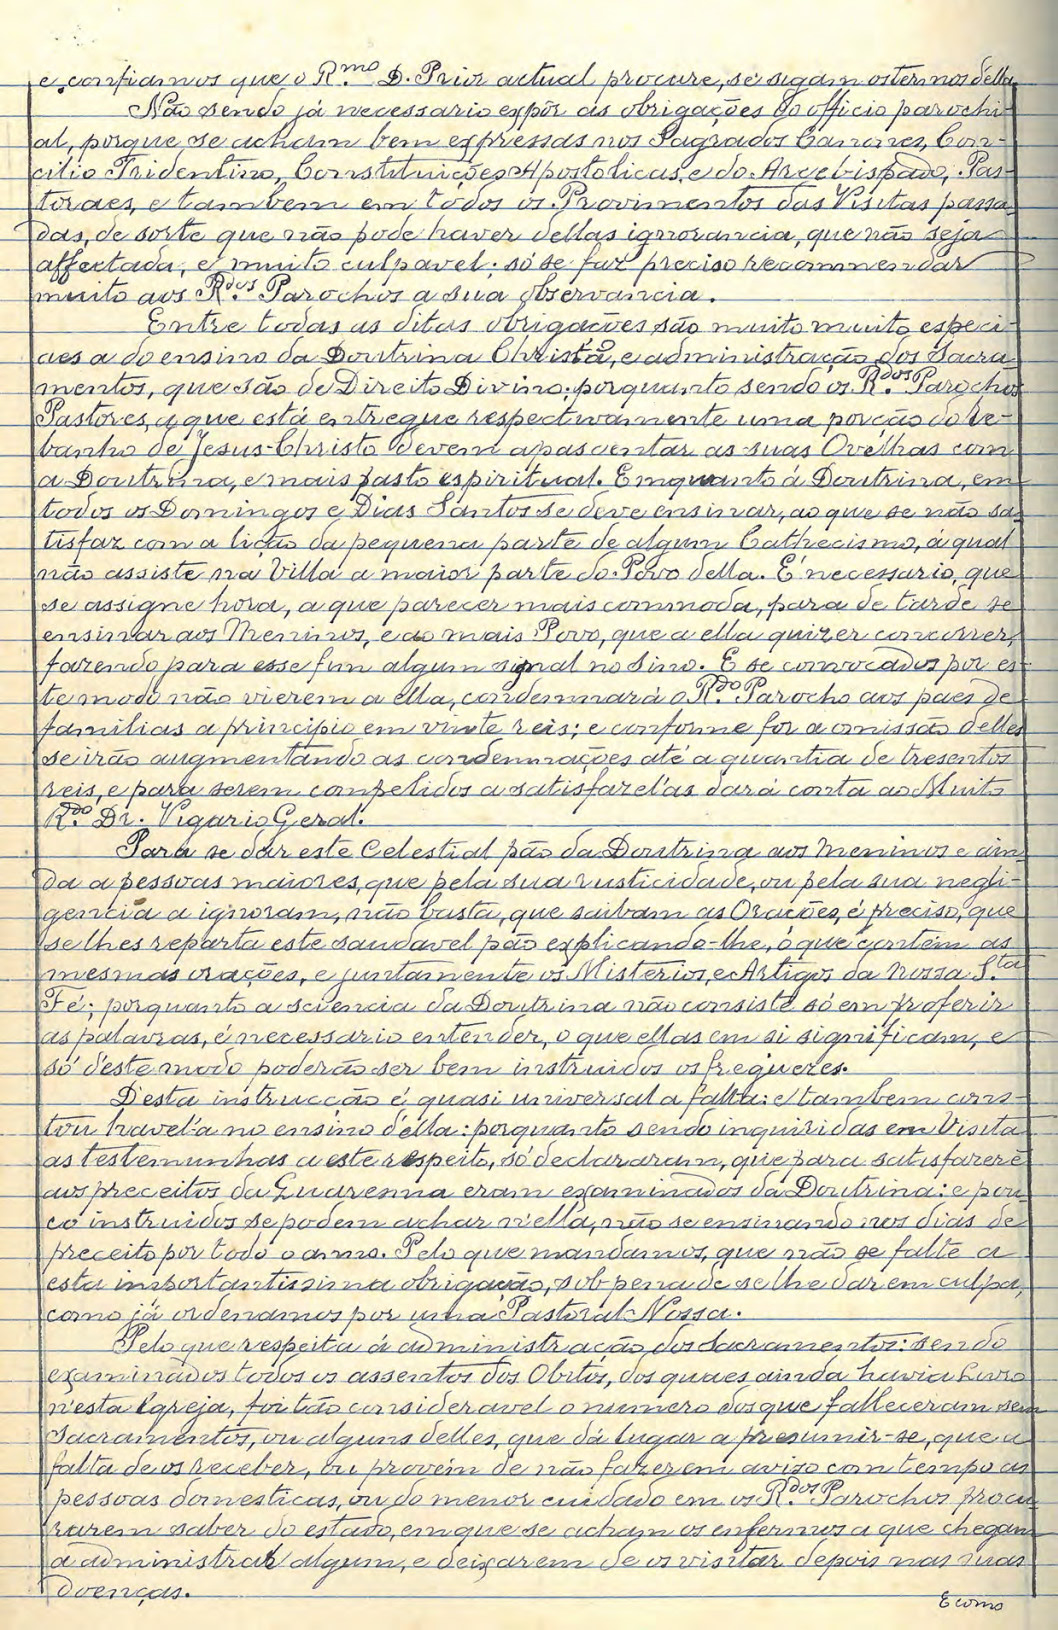 e confiamos que o R.mo D. Prior actual procure, se sigam os termos della.
Não sendo já necessario expôr as obrigações do officio parochi-
al, porque se acham bem expressas nos Sagrados Canones, Con-
cilio Tridentino, Constituições Apostolicas, e do Arcebispado, Pas-
toraes, e tambem em todos os Provimentos das Visitas passa-
das, de sorte que não pode haver dellas ignorancia, que não seja
affectada, e muito culpavel; só se faz preciso recommendar
muito aos R.dos Parochos a sua observancia.
Entre todas as ditas obrigações são muito muito especi-
aes a do ensino da Doutrina Christã, e administração dos Sacra-
mentos, que são de Direito Divino; porquanto sendo os R.dos Parochos
Pastores, a que está entregue respectivamente uma porção do re-
banho de Jesus-Christo devem apascentar as suas Ovelhas com
a Doutrina, e mais pasto espiritual. Emquanto á Doutrina, em
todos os Domingos e Dias Santos se deve ensinar, ao que se não sa-
tisfaz com a lição da pequena parte de algum Cathecismo, á qual
não assiste na Villa a maior parte do Povo della. É necessario, que
se assigne hora, a que parecer mais commoda, para de tarde se
ensinar aos Meninos, e ao mais Povo, que a ella quizer concorrer,
fazendo para esse fim algum signal no sino. E se convocados por es-
te modo não vierem a ella, condemnará o R.do Parocho aos paes de
familias a principio em vinte reis; e conforme for a omissão delles
se irão augmentando as condemnações até a quantia de tresentos
reis, e para serem compelidos a satisfazel'as dará conta ao Muito
R.do Dr. Vigario Geral.
Para se dar este Celestial pão da Doutrina aos Meninos e ain-
da a pessoas maiores, que pela sua rusticidade, ou pela sua negli-
gencia a ignoram, não basta, que saibam as Orações, é preciso, que
se lhes reparta este saudavel pão explicando-lhe, o que contêm as
mesmas orações, e juntamente os Misterios, e Artigos da Nossa S.ta
Fé; porquanto a sciencia da Doutrina não consiste só em proferir
as palavras, é necessario entender, o que ellas em si significam, e
só d'este modo poderão ser bem instruidos os freguezes.
Desta instrucção é quasi universal a falta: e tambem cons-
tou havel'a no ensino d'ella: porquanto sendo inquiridas em Visita
as testemunhas a este respeito, só declararam, que para satisfazerẽ
aos preceitos da Quaresma eram examinados da Doutrina: e pou-
co instruidos se podem achar n'ella, não se ensinando nos dias de
preceito por todo o anno. Pelo que mandamos, que não se falte a
esta importantissima obrigação, sob pena de se lhe dar em culpa,
como já ordenamos por uma Pastoral Nossa.
Pelo que respeita á administração dos Sacramentos: sendo
examinados todos os assentos dos Obitos, dos quaes ainda havia Livro
n'esta Igreja, foi tão consideravel o numero dos que falleceram sem
Sacramentos, ou alguns delles, que dá lugar a presumir-se, que a
falta de os receber, ou provém de não fazerem aviso com tempo as
pessoas domesticas, ou do menor cuidado em os R.dos Parochos procu-
rarem saber do estado, em que se acham os enfermos a que chegam
a administrar algum, e deixarem de os visitar depois nas suas
doenças.
E como